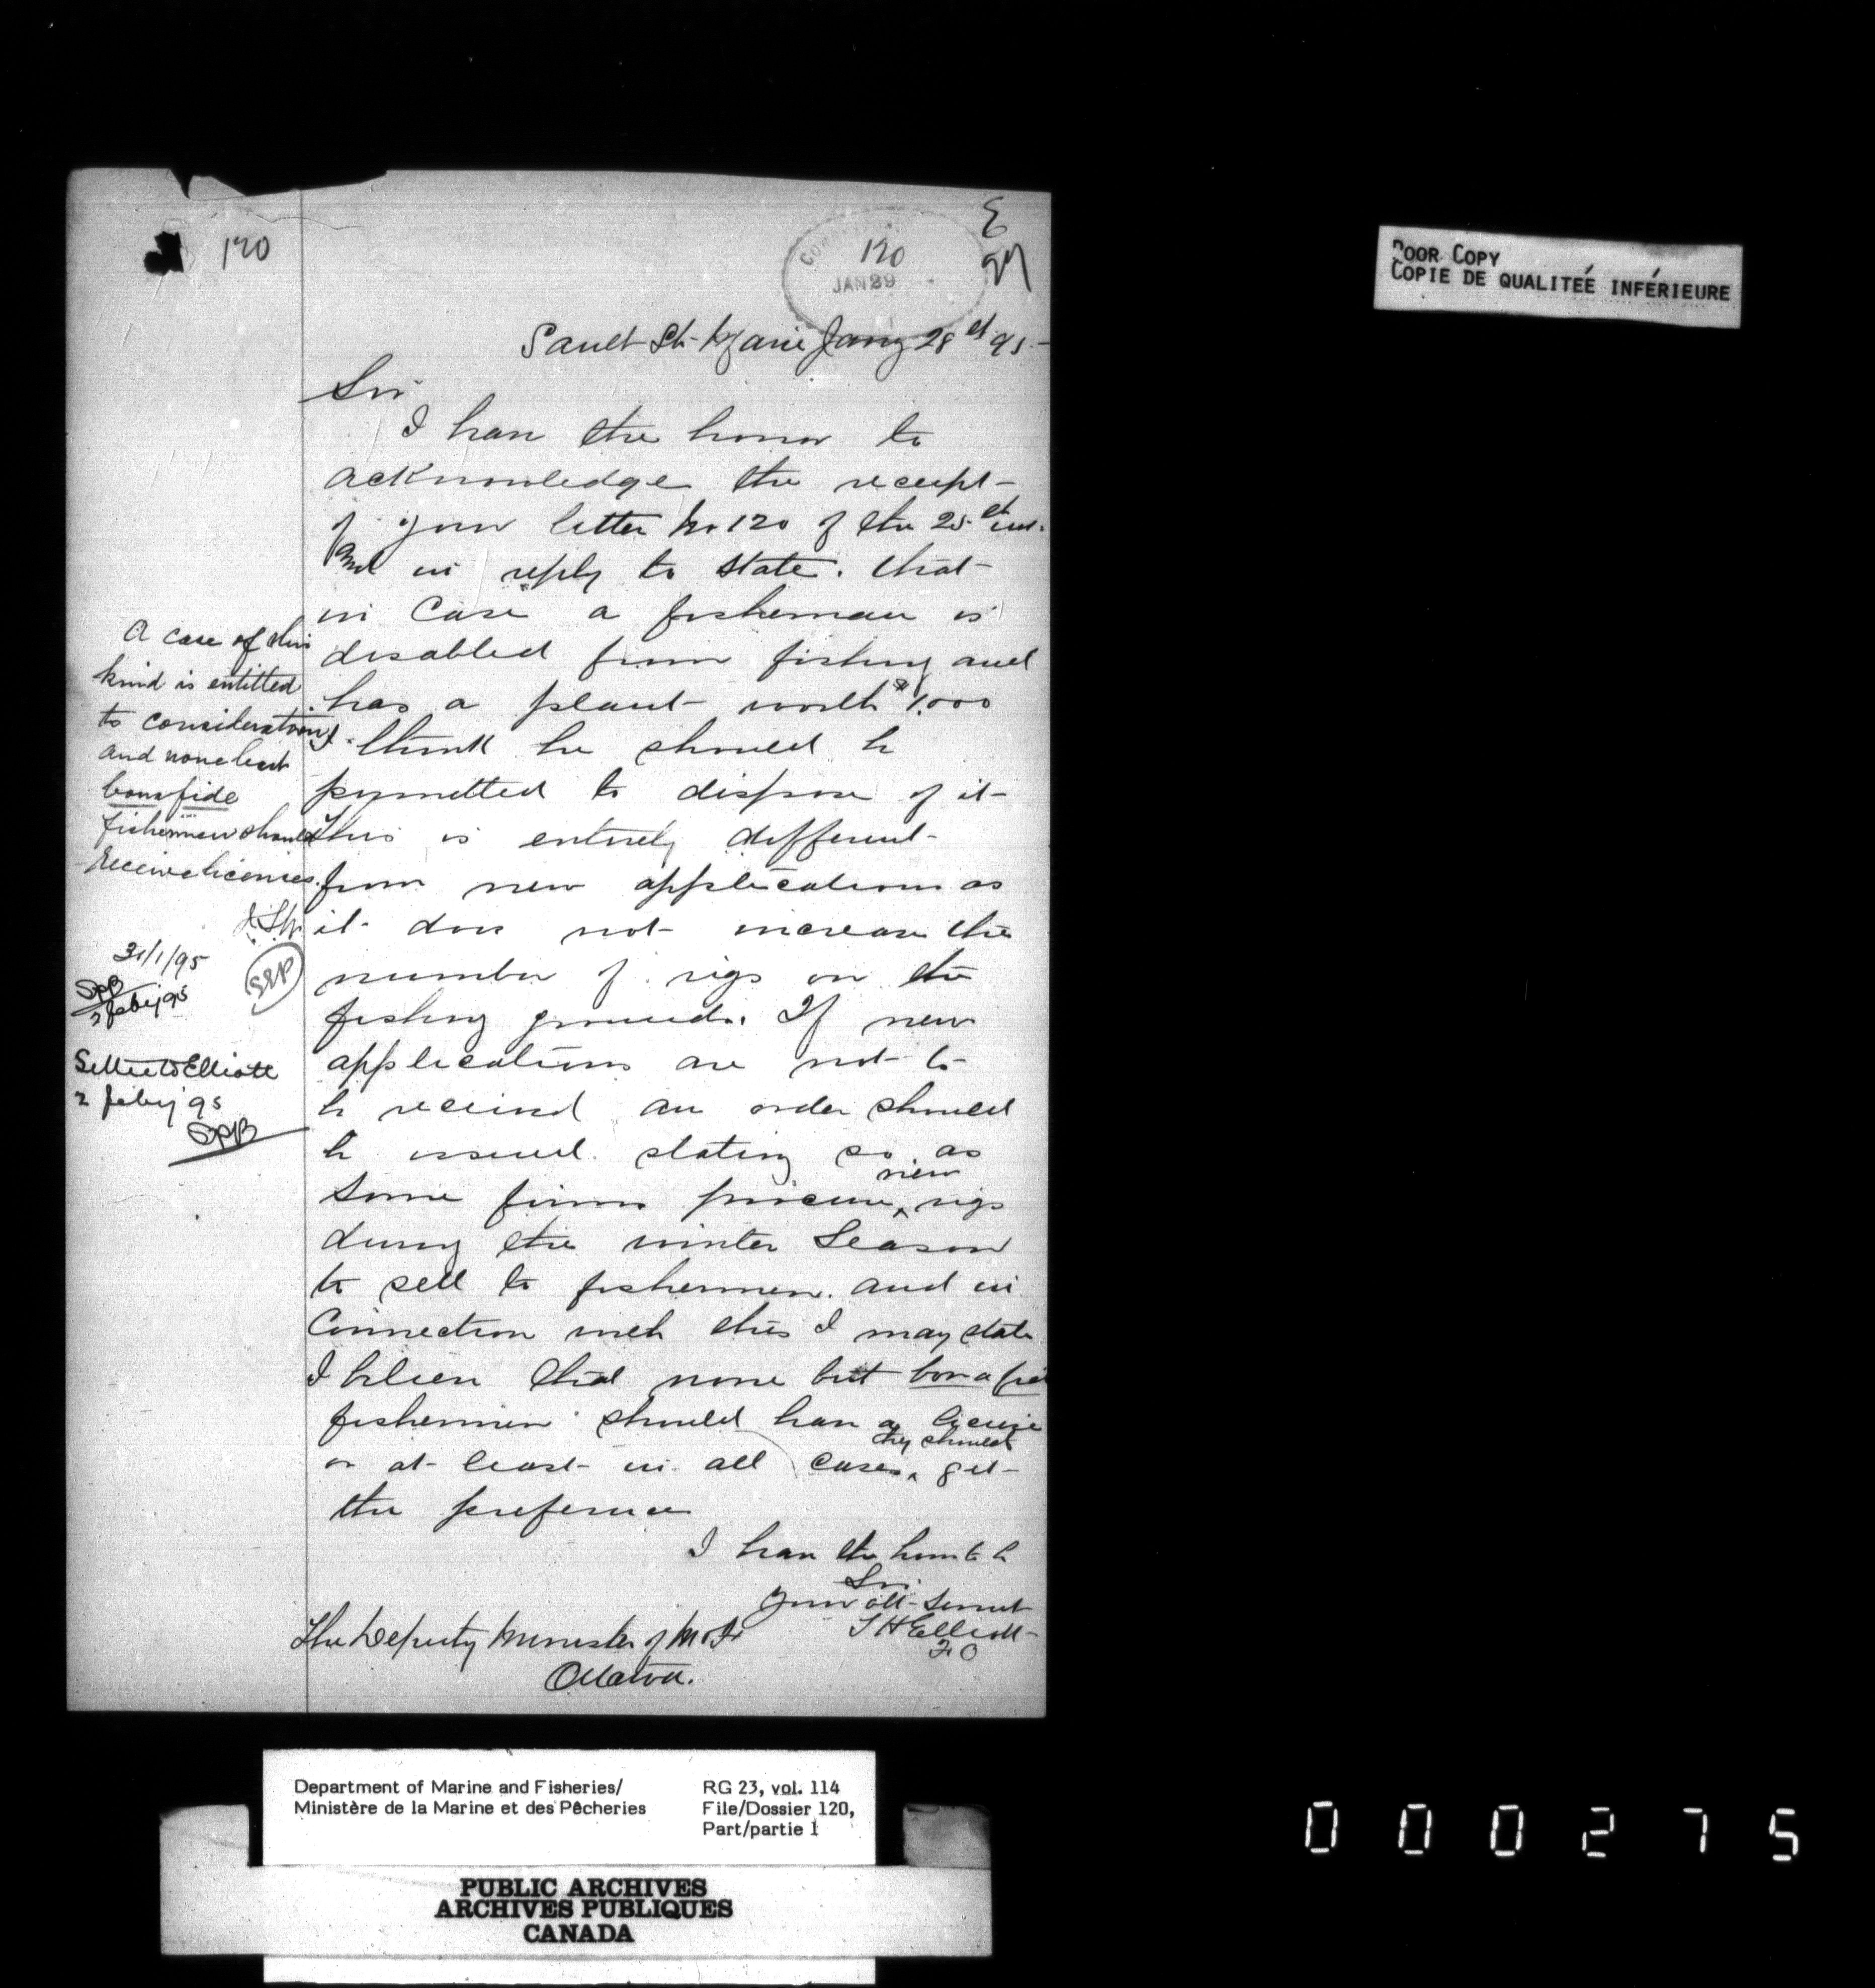 120
120
JAN 29
E
Sault Ste Marie Jany 28th 95
Sir
I have the honor to
acknowledge the receipt
of your letter No 120 of the 25th inst.
and in reply to state. that
in case a fisherman is
disabled from fishing and
has a plant worth $1.000
I think he should be
permitted to dispose of it
This is entirely different
from new applications as
it does not increase the
number of rigs on the
fishing grounds. If new
applications are not to
be received an order should
be issued. stating so. as
some firms procure new rigs
during the winter season
to sell to fishermen. and in
connection with this I may state
I believe that none but bona fide
fishermen should have a license
or at least in all cases they should get
the preference
I have the honor to be
Sir
Your obt servnt
T H Elliott
F O
The Deputy Minister of M & F
Ottawa.
A case of this
kind is entitled
to consideration
and none but
bona fide
fishermen should
receive licenses.
31/1/95
2 Feby 95
Letter to Elliott
2 Feby 95
Poor Copy
Copie de qualiteé inférieure
Department of Marine and Fisheries/
Ministère de la Marine et des Pêcheries
RG 23, vol. 114
File/Dossier 120,
Part/partie 1
PUBLIC ARCHIVES
ARCHIVES PUBLIQUES
CANADA
000275